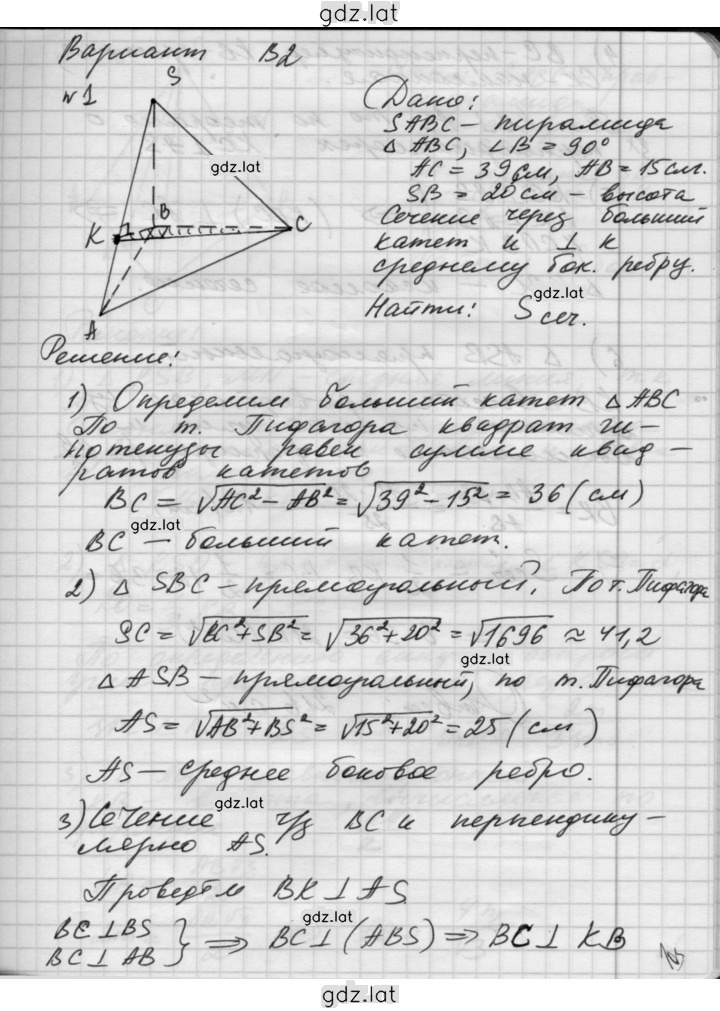 gdz.lat
Вариант В2
S
№1
Дано:
SABC – пирамида
△ABC, ∠B = 90°
AC = 39 см, AB = 15 см.
SB = 20 см – высота
Сечение через больший
катет и ⊥ к
среднему бок. ребру.
gdz.lat
Найти: Sсеч.
gdz.lat
B
K
C
A
Решение:
1) Определим больший катет △ABC
По т. Пифагора квадрат ги-
потенузы равен сумме квад-
ратов катетов
BC = √AC² – AB² = √39² – 15² = 36 (см)
gdz.lat
BC – больший катет.
2) △ SBC – прямоугольный, По т. Пифагора
SC = √BC² + SB² = √36² + 20² = √1696 ≈ 41,2
gdz.lat
△ASB – прямоугольный, по т. Пифагора
AS = √AB² + BS² = √15² + 20² = 25 (см)
AS – среднее боковое ребро.
gdz.lat
3) Сечение ч/з BC и перпендику-
лярно AS.
Проведём BK ⊥ AS
gdz.lat
BC ⊥ BS
BC ⊥ AB } ⇒ BC ⊥ (ABS) ⇒ BC ⊥ KB
gdz.lat